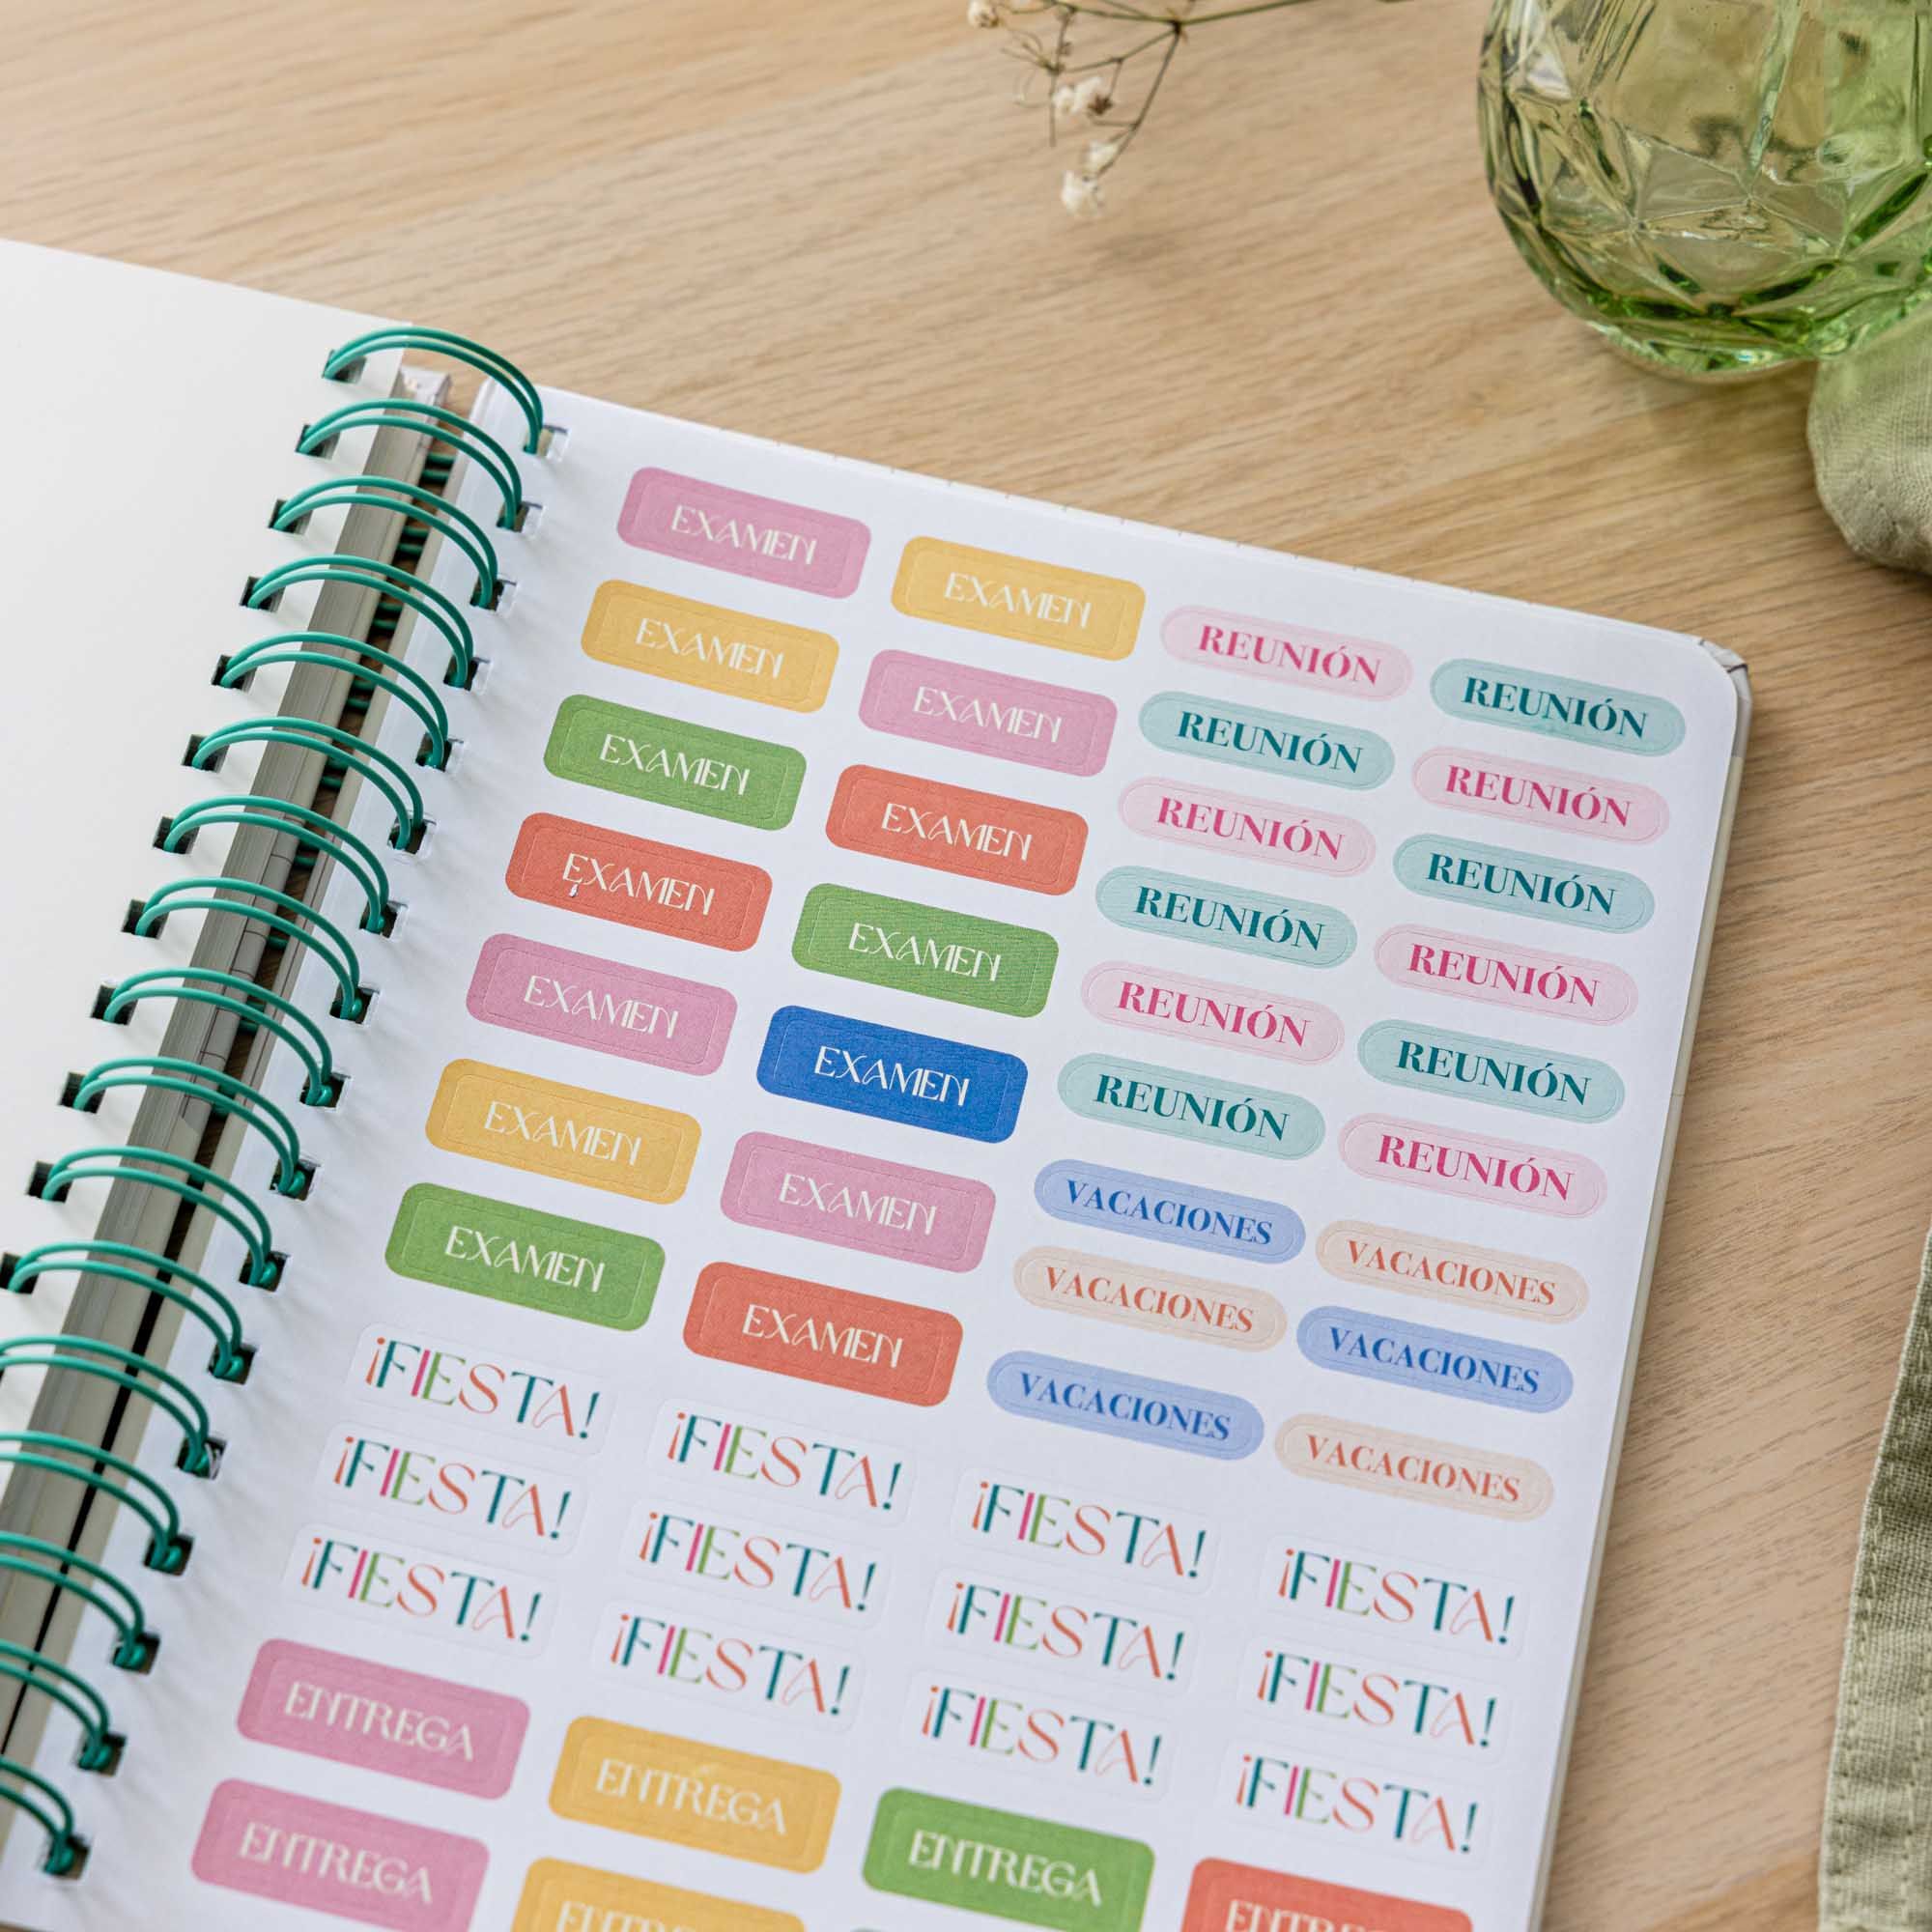 EXAMEN EXAMEN REUNIÓN REUNIÓN
EXAMEN EXAMEN REUNIÓN REUNIÓN
EXAMEN EXAMEN REUNIÓN REUNIÓN
EXAMEN EXAMEN REUNIÓN REUNIÓN
EXAMEN EXAMEN REUNIÓN REUNIÓN
EXAMEN EXAMEN REUNIÓN REUNIÓN
EXAMEN EXAMEN VACACIONES VACACIONES
VACACIONES VACACIONES
VACACIONES VACACIONES
¡FIESTA! ¡FIESTA! ¡FIESTA! ¡FIESTA!
¡FIESTA! ¡FIESTA! ¡FIESTA! ¡FIESTA!
¡FIESTA! ¡FIESTA! ¡FIESTA! ¡FIESTA!
ENTREGA ENTREGA ENTREGA
ENTREGA